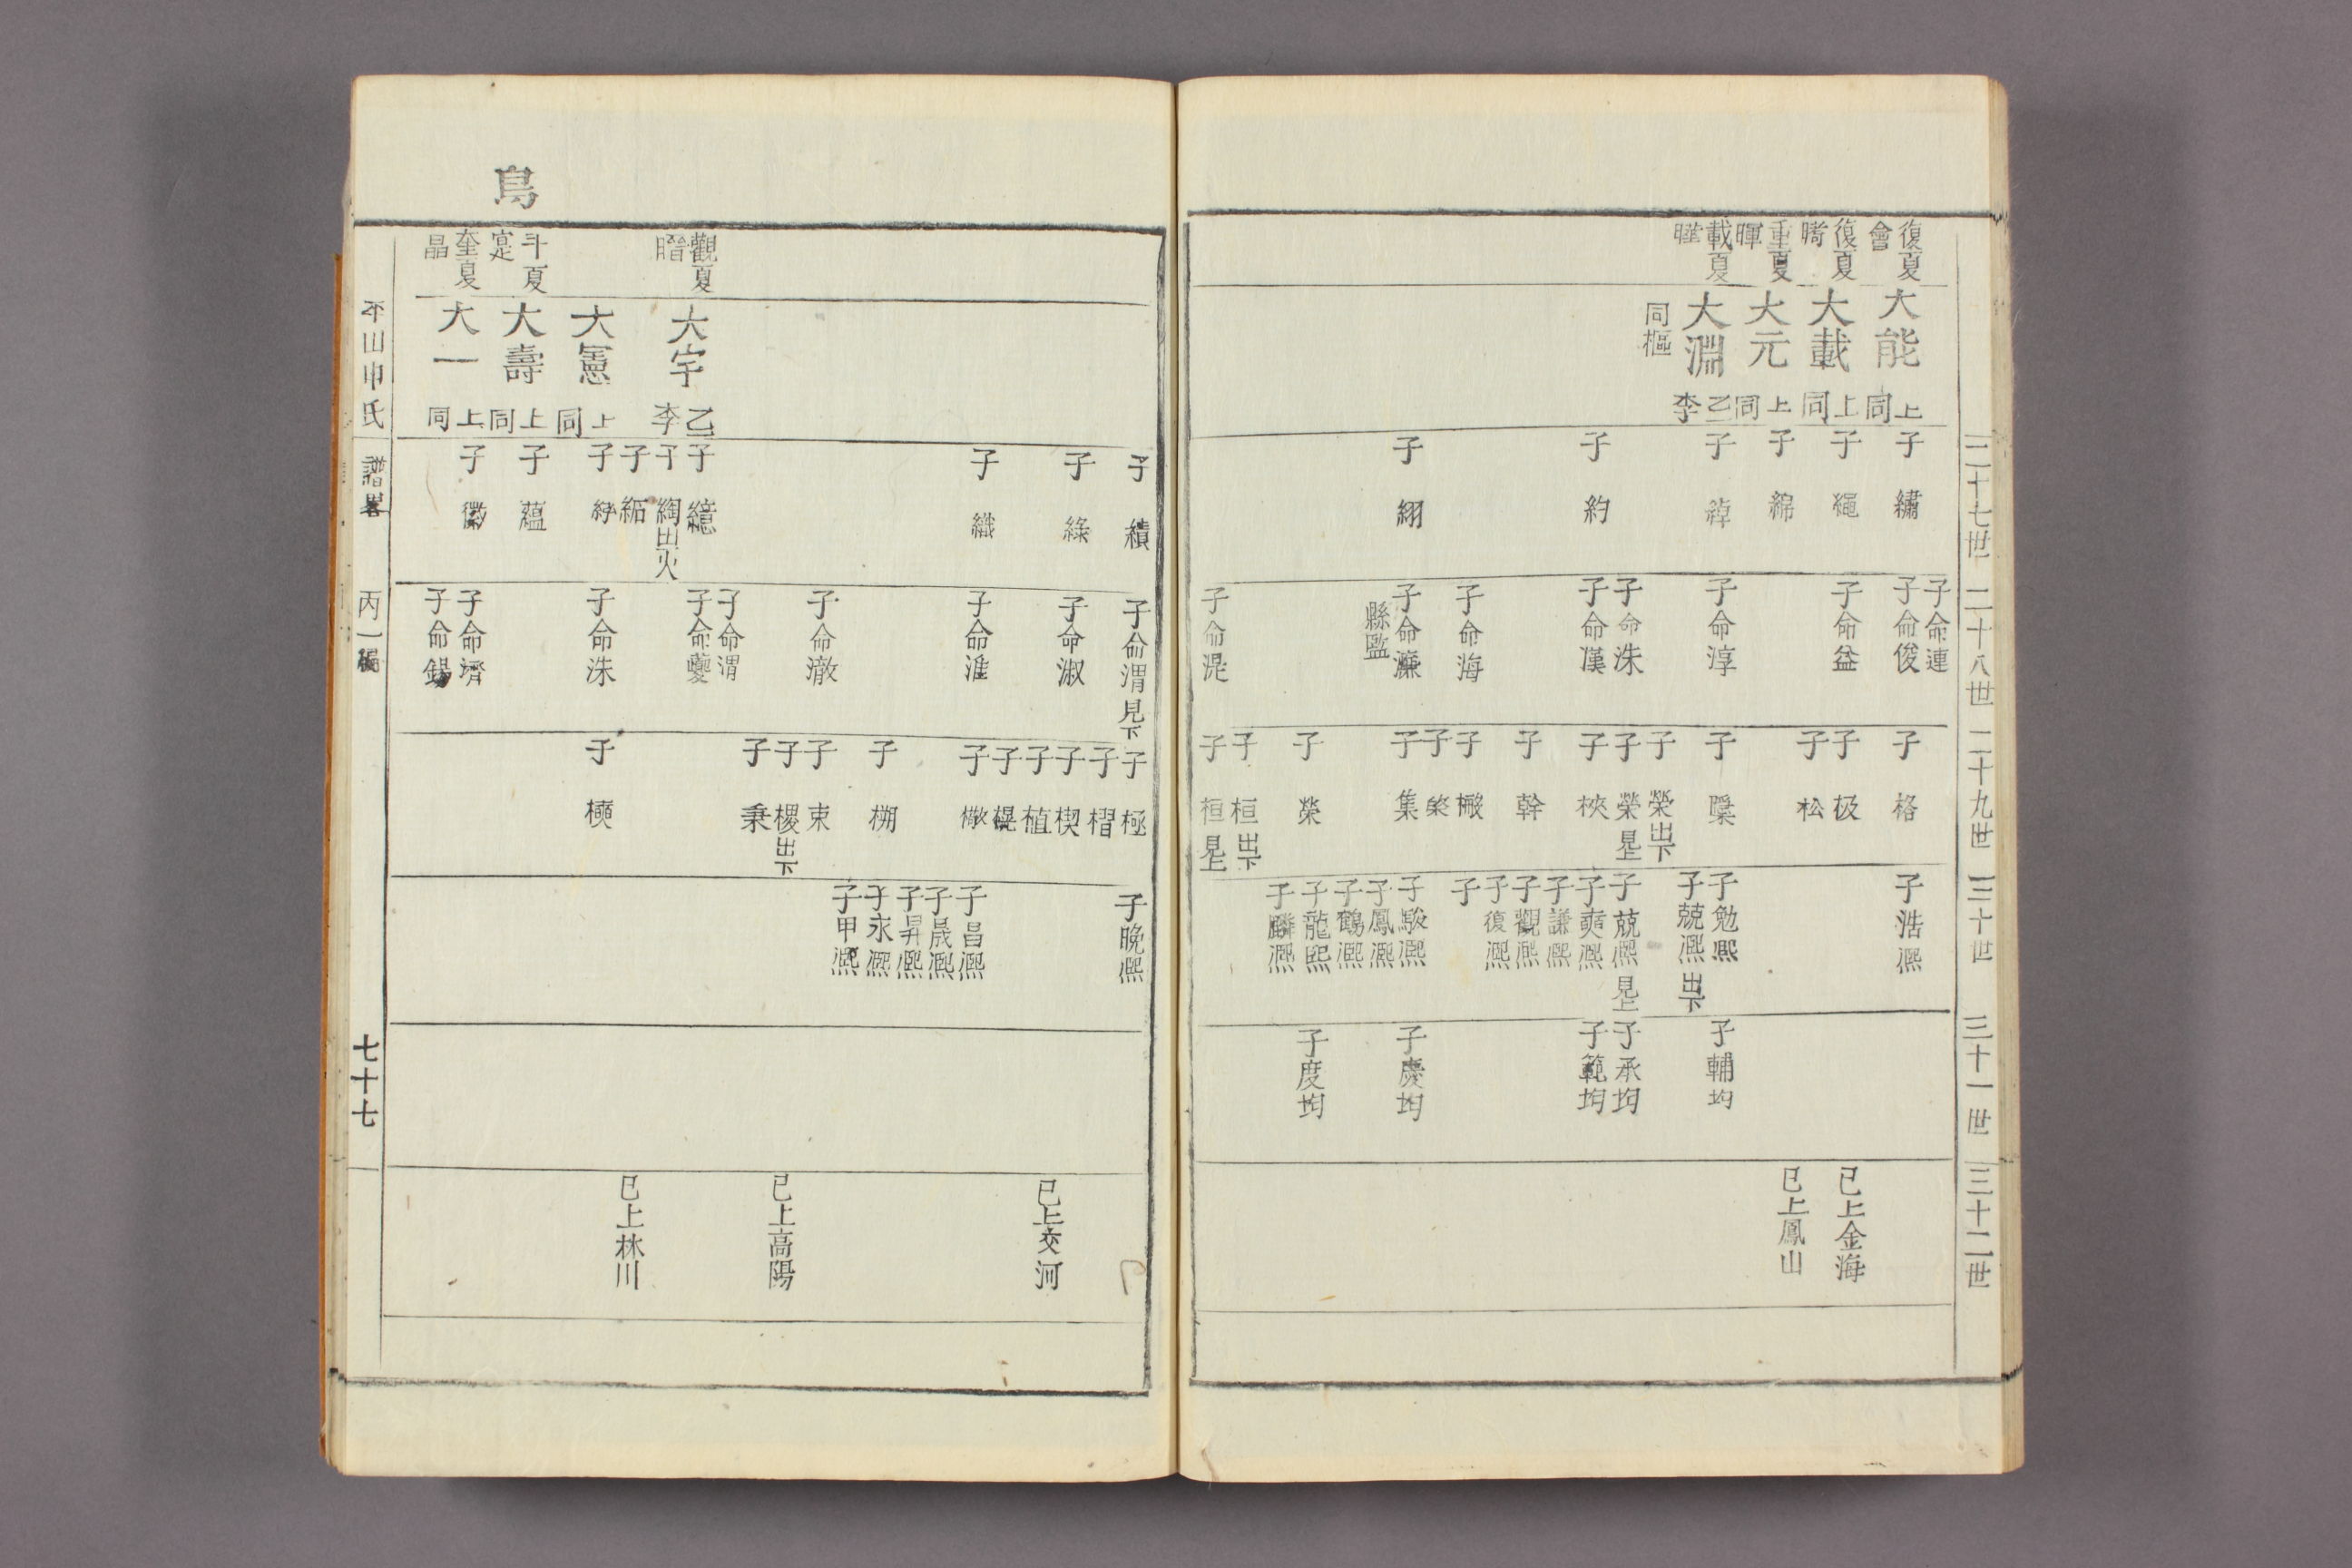 二十七世
二十八世
二十九世
三十世
三十一世
三十二世
復夏
會
復夏
重夏
暉
載夏
大能
上
同
大載
上
同
大元
上
同
大淵
乙
李
同樞
子 繡
子 繩
子 綿
子 綽
子 約
子 絪
子命連
子命俊
子命益
子命淳
子命洙
子命漢
子命海
子命濂
縣監
子命混
子 格
子 极
子 松
子
子榮出下
子榮見上
子 梜
子 幹
子 橵
子
子 集
子 榮
子桓出下
子桓見上
子浩熙
子勉熙
子兢熙出下
子兢熙見上
子奭熙
子謙熙
子觀熙
子復熙
子
子駿熙
子鳳熙
子鶴熙
子龍熙
子麟熙
子輔均
子承均
子範均
子慶均
子度均
已上金海
已上鳳山
鳥
觀夏
斗夏
寔
奎夏
晶
大宇
乙
李
大憲
上
同
大壽
上
同
大一
上
同
子 績
子 綠
子 織
子 繶
子綯出火
子
子
子 蘊
子 徽
子命渭見下
子命淑
子命淮
子命澈
子命渭
子命夔
子命洙
子命濟
子命錫
子 極
子 槢
子 楔
子 植
子 榥
子 橵
子 㮶
子 束
子稷出下
子 秉
子
子晚熙
子昌熙
子晟熙
子昇熙
子永熙
子甲熙
已上交河
已上高陽
已上林川
平山申氏 譜畧 丙一編 七十七